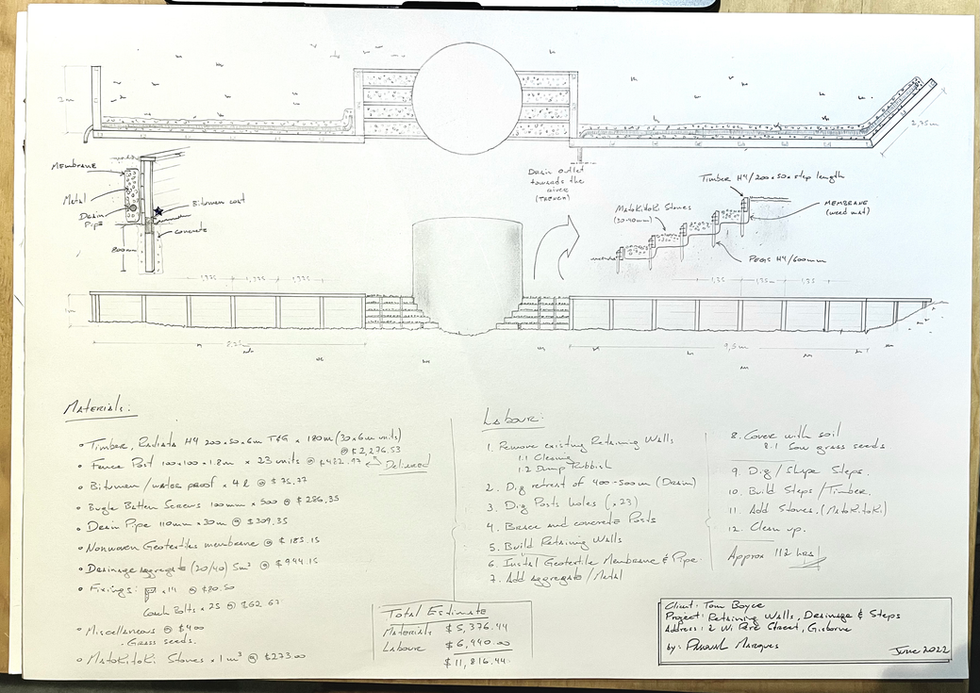 2m
2,75m
Drain outlet
towards the
river
(TRENCH)
Timber H4/200x50xstep length
MEMBRANE
(weed mat)
Matokitoki Stones
PEGS H4/600mm
MEMBRANE
Metal
Drain
Pipe
Bitumen coat
concrete
800mm
9,5m
Materials:
• Timber, Radiata H4 200x50x6m T&G x 180m (30x6m units)
@ $2,276.53
• Fence Post 100x100x1.8m x 23 units @
Delivered
• Bitumen/water proof x 4l @
• Bugle Batten Screws 100mm x 500 @ $286,35
• Drain Pipe 110mm x 30m @ $309,35
• Nonwoven Geotextiles membrane @ $183.15
• Drainage aggregate (20/40) 5m³ @ $944.15
• Fixings: x14 @ $80.50
Coach Bolts x 25 @ $62.67
• Miscellaneous @ $400
. Grass seeds.
• Matokitoki Stones x 1m³ @ $273.00
Labour:
1. Remove existing Retaining Walls
1.1 Cleaning
1.2 Dump Rubbish
2. Dig retreat of 400-500m (Drain)
3. Dig Posts holes (x23)
4. Brace and concrete Posts
5. Build Retaining Walls
6. Instal Geotextile Membrane & Pipe
7. Add aggregate/Metal
8. Cover with soil
8.1 Sow grass seeds
9. Dig/Shape Steps.
10. Build Steps/Timber.
11. Add Stones. (Matokitoki)
12. Clean up.
Approx 112 hrs!
Total Estimate
Materials $5,376.44
Labour $6,440.00
$11,816.44
Client: Tom Boyce
Project: Retaining Walls, Drainage & Steps
Address: 2 Wi Pere Street, Gisborne
by: Marques
June 2022